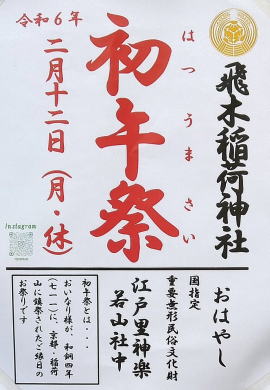 飛木稲荷神社
はつうまさい
初午祭
令和6年
二月十二日(月・休)
Instagram
おはやし
国指定
重要無形民俗文化財
江戸里神楽
若山社中
初午祭とは・・・
おいなり様が、和銅四年
(七一一)に、京都・稲荷
山に鎮祭されたご縁日の
お祭りです